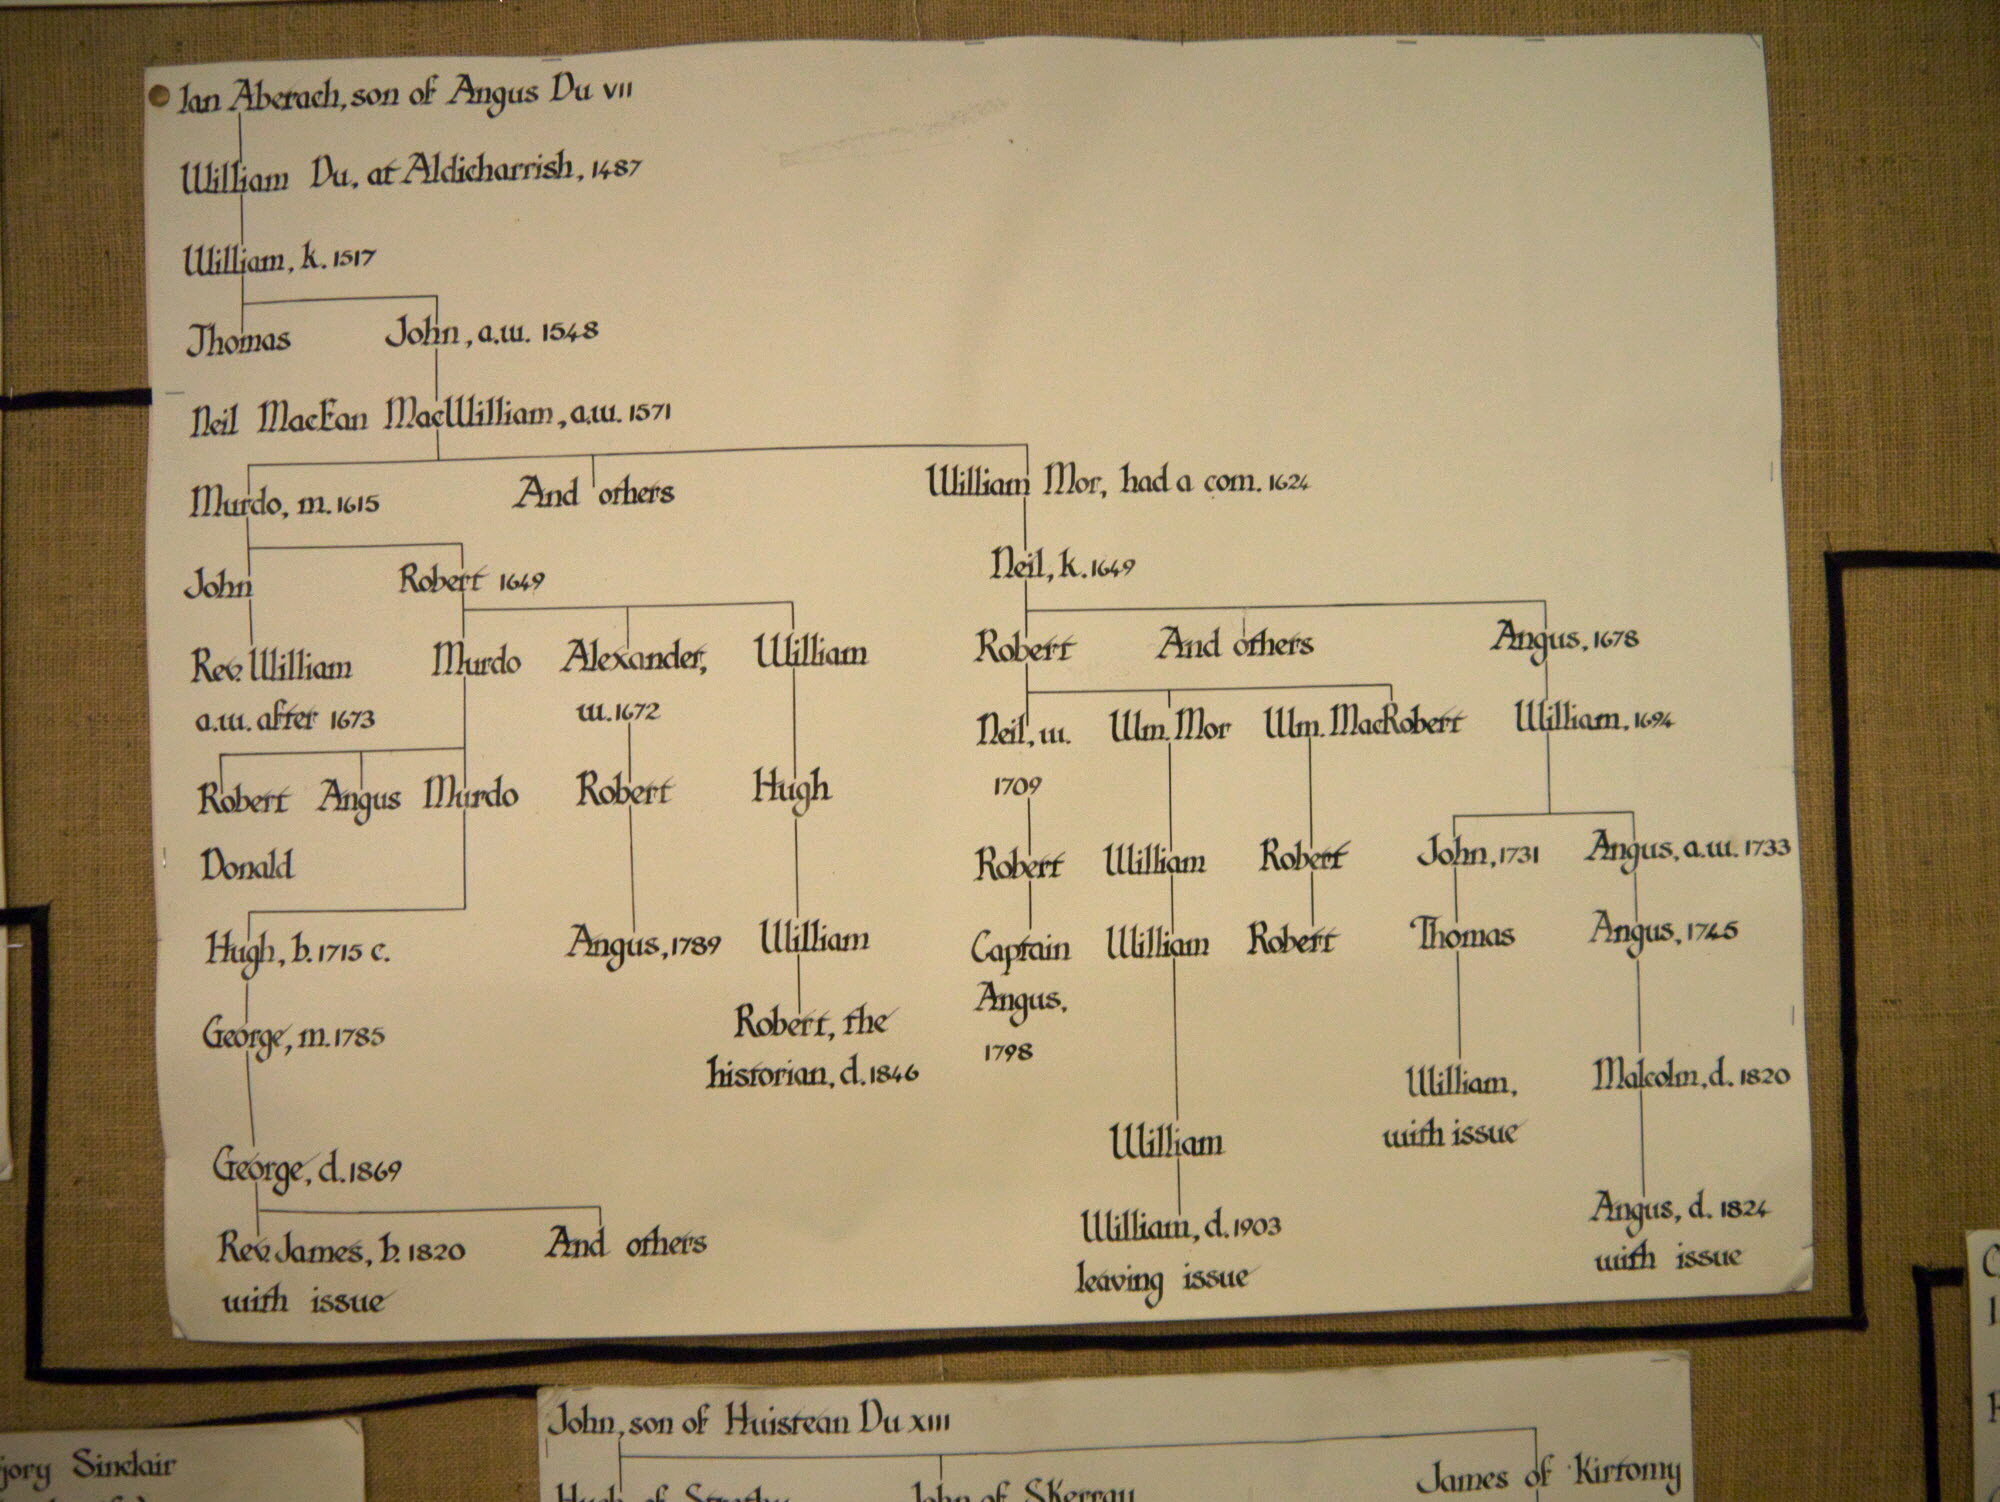 Ian Aberach, son of Angus Du VII
William Du, at Aldicharrish, 1487
William, k. 1517
Thomas John, a.w. 1548
Neil MacEan MacWilliam, a.w. 1571
Murdo, m. 1615 And others William Mor, had a com. 1624
John Robert 1649 Neil, k. 1649
Rev. William Murdo Alexander, William Robert And others Angus, 1678
a.w. after 1673 w. 1672 Neil, w. Wm. Mor Wm. MacRobert William, 1694
Robert Angus Murdo Robert Hugh 1709
Donald Robert William Robert John, 1731 Angus, a.w. 1733
Hugh, b. 1715 c. Angus, 1789 William Captain William Robert Thomas Angus, 1745
George, m. 1785 Robert, the Angus,
historian, d. 1846 1798 William, Malcolm, d. 1820
George, d. 1869 William with issue
Rev. James, b. 1820 And others William, d. 1903 Angus, d. 1824
with issue leaving issue with issue
John, son of Huistean Du XIII
jory Sinclair James of Kirtomy
John of Skerray